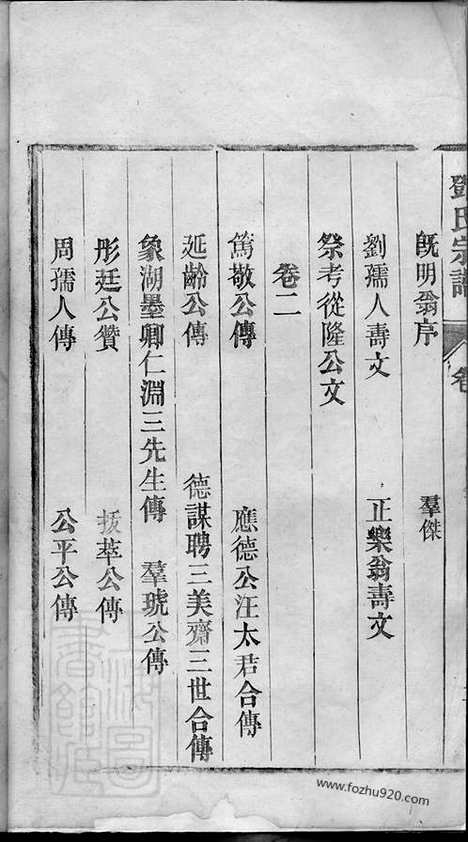 鄧氏宗譜 卷
旣明翁序 羣傑
劉孺人壽文 正樂翁壽文
祭考從隆公文
卷二
篤敬公傳 應德公汪太君合傳
延齡公傳 德謀聘三美齋三世合傳
象湖墨卿仁淵三先生傳 羣琥公傳
彤廷公贊 拔萃公傳
周孺人傳 公平公傳
www.fozhu920.com